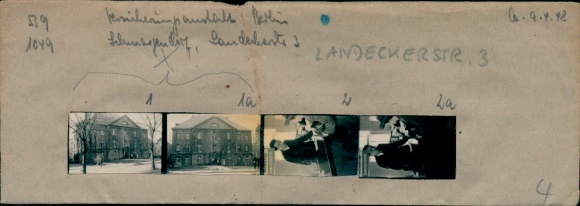 539 Versicherungsanstalt Berlin Co. 9.4.48
1049 Schmargendorf, Landeckerstr 3
LANDECKERSTR. 3
1 1a 2 2a
4